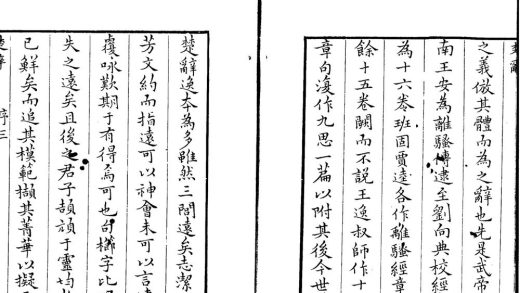 楚辭
之義倣其體而為之辭也先是武帝
南王安為離騷傳逮至劉向典校經
為十六卷班固賈逵各作離騷經章
餘十五卷闕而不說王逸叔師作十
章句復作九思一篇以附其後今世
楚辭逸本為多雖然三閭遠矣志潔
芳文約而指遠可以神會未可以言達
覆咏歎期于有得焉可也句櫛字比
失之遠矣且後之君子頡頏于靈均
已鮮矣而追其模範擷其菁華以擬
楚辭 序三